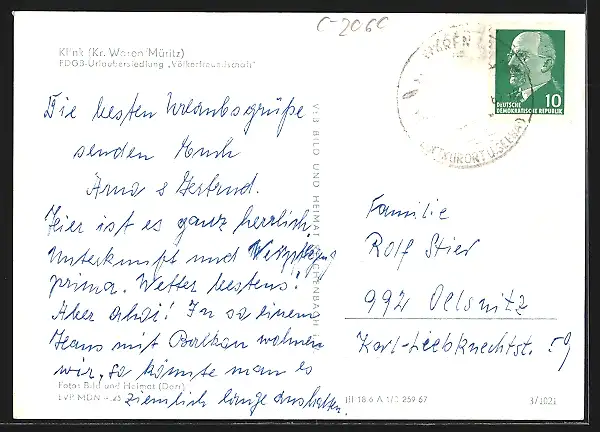 C-2060
Klink (Kr. Waren/Müritz)
FDGB-Urlaubersiedlung „Völkerfreundschaft"
WAREN
LUFTKURORT U.
DEUTSCHE
DEMOKRATISCHE REPUBLIK
10
Die besten Urlaubsgrüße
senden Euch
Arna & Gertrud.
Hier ist es ganz herrlich,
Unterkunft und Verpflegung
prima. Wetter bestens!
Aber ahoi! In so einem
Haus mit Balkon wohnen
wir, so könnte man es
ziemlich lange aushalten.
VEB BILD UND HEIMAT REICHENBACH
Familie
Rolf Stier
992 Oelsnitz
Karl-Liebknechtst. 59
Foto: Bild und Heimat (Dorr)
EVP MDN -,25
III 18 6 A 1/1 259 67
3/1021